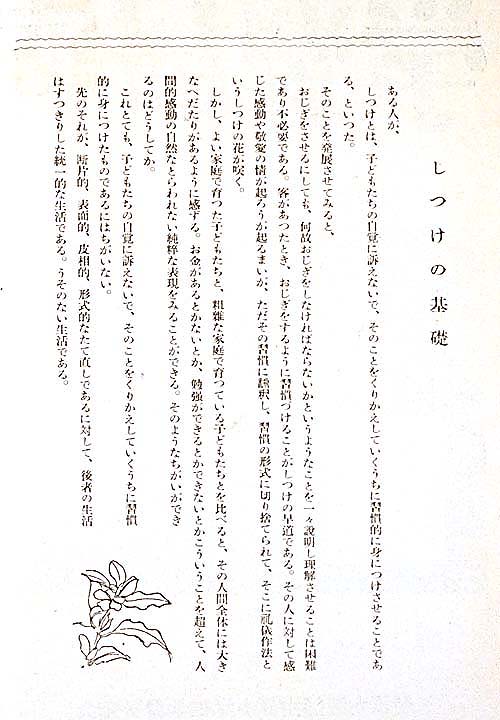 しつけの基礎
ある人が、
しつけとは、子どもたちの自覚に訴えないで、そのことをくりかえしていくうちに習慣的に身につけさせることであ
る、といつた。
そのことを発展させてみると、
おじぎをさせるにしても、何故おじぎをしなければならないかというようなことを一々説明し理解させることは困難
であり不必要である。客があつたとき、おじぎをするように習慣づけることがしつけの早道である。その人に対して感
じた感動や敬愛の情が起ろうが起るまいが、ただその習慣に講釈し、習慣の形式に切り捨てられて、そこに礼儀作法と
いうしつけの花が咲く。
しかし、よい家庭で育つた子どもたちと、粗雑な家庭で育つている子どもたちとを比べると、その人間全体には大き
なへだたりがあるように感ずる。お金があるとかないとか、勉強ができるとかできないとかこういうことを超えて、人
間的感動の自然なとらわれない純粋な表現をみることができる。そのようなちがいができ
るのはどうしてか。
これとても、子どもたちの自覚に訴えないで、そのことをくりかえしていくうちに習慣
的に身につけたものであるにはちがいない。
先のそれが、断片的、表面的、皮相的、形式的なたて直しであるに対して、後者の生活
はすつきりした統一的な生活である。うそのない生活である。